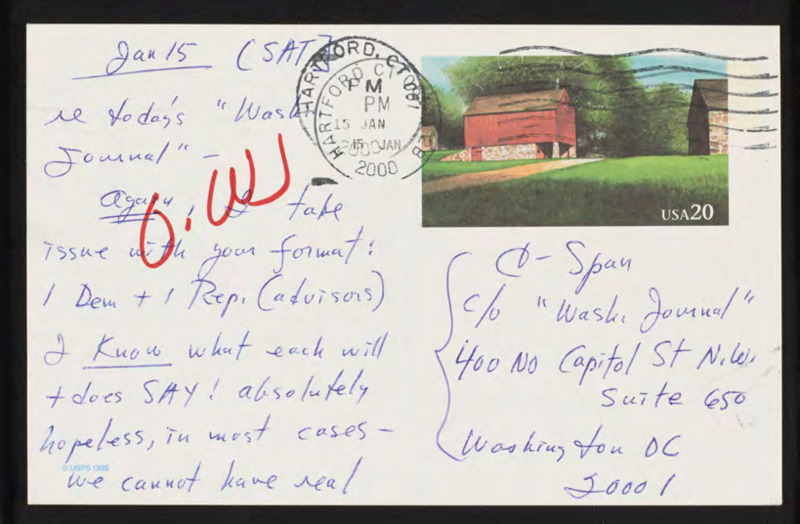 Jan 15 (SAT)
re today's "Wash.
Journal" -
Again, I take
issue with your format:
1 Dem + 1 Rep. (advisors)
I Know what each will
+ does SAY! absolutely
hopeless, in most cases -
we cannot have real
© USPS 1995
HARTFORD, CT 061
HARTFORD CT
PM
PM
15 JAN
15 JAN
2000
2000
USA20
C-Span
c/o "Wash. Journal"
400 No Capitol St N.W.
Suite 650
Washington DC
20001